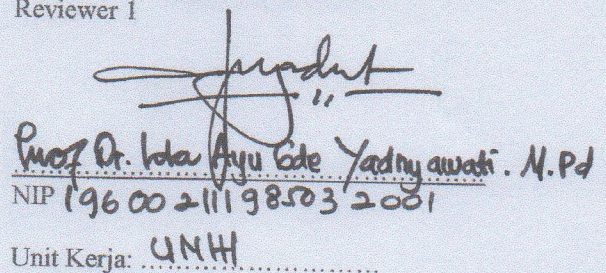 Reviewer 1
Prof Dr. Ida Ayu Gde Yadnyawati. M.Pd
NIP 196002111985032001
Unit Kerja: UNHI